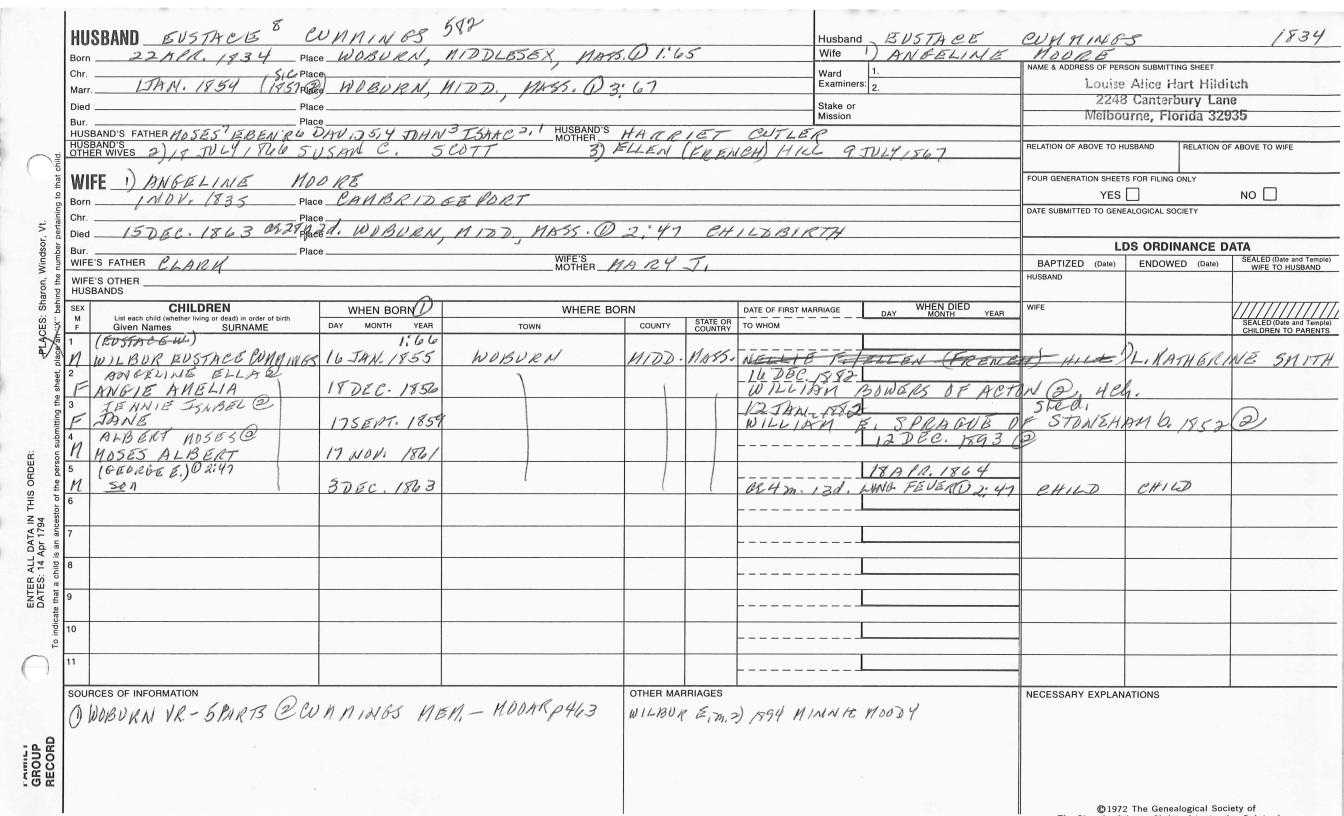 HUSBAND EUSTACE 8 CUMMINGS 582
Born 22 APR. 1834 Place WOBURN, MIDDLESEX, MASS. ① 1:65
Chr. Place
Marr. 1 JAN. 1854 (SIC 1857②) Place WOBURN, MIDD., MASS. ① 3:67
Died Place
Bur. Place
HUSBAND'S FATHER MOSES 7 EBEN R 6 DAVID 5,4 JOHN 3 ISAAC 2,1 HUSBAND'S MOTHER HARRIET CUTLER
HUSBAND'S OTHER WIVES 2) 18 JULY 1866 SUSAN C. SCOTT 3) ELLEN (FRENCH) HILL 9 JULY 1867
WIFE 1) ANGELINE MOORE
Born 1 NOV. 1835 Place CAMBRIDGEPORT
Chr. Place
Died 15 DEC. 1863 Place WOBURN, MIDD, MASS. ① 2:47 CHILDBIRTH
Bur. Place
WIFE'S FATHER CLARK WIFE'S MOTHER MARY J.
WIFE'S OTHER HUSBANDS
Husband EUSTACE CUMMINGS 1834
Wife 1) ANGELINE MOORE
Ward Examiners: 1. 2.
Stake or Mission
NAME & ADDRESS OF PERSON SUBMITTING SHEET
Louise Alice Hart Hilditch
2248 Canterbury Lane
Melbourne, Florida 32935
RELATION OF ABOVE TO HUSBAND RELATION OF ABOVE TO WIFE
FOUR GENERATION SHEETS FOR FILING ONLY
YES NO
DATE SUBMITTED TO GENEALOGICAL SOCIETY
LDS ORDINANCE DATA
BAPTIZED (Date) ENDOWED (Date) SEALED (Date and Temple) WIFE TO HUSBAND
HUSBAND
WIFE
SEALED (Date and Temple) CHILDREN TO PARENTS
SEX M F CHILDREN WHEN BORN ① WHERE BORN DATE OF FIRST MARRIAGE WHEN DIED
List each child (whether living or dead) in order of birth
Given Names SURNAME DAY MONTH YEAR TOWN COUNTY STATE OR COUNTRY TO WHOM DAY MONTH YEAR
1 (EUSTACE W.) 1:66
M WILBUR EUSTACE CUMMINGS 16 JAN. 1855 WOBURN MIDD. MASS. ELLEN (FRENCH) HILL 1) L. KATHERINE SMITH
2 ANGELINE ELLA ② 16 DEC. 1882
F ANGIE AMELIA 18 DEC. 1856 WILLIAM BOWERS OF ACTON ②, 4ch.
3 JENNIE ISABEL ② 12 JAN. 1882
F JANE 17 SEPT. 1859 WILLIAM E. SPRAGUE OF STONEHAM b. 1852 ②
4 ALBERT MOSES ② 12 DEC. 1893 ②
M MOSES ALBERT 17 NOV. 1861
5 (GEORGE E.) ① 2:47 18 APR. 1864
M son 3 DEC. 1863 ae 4 m. 13d. LUNG FEVER ① 2:47 CHILD CHILD
6
7
8
9
10
11
SOURCES OF INFORMATION
① WOBURN VR - 5 PARTS ② CUMMINGS MEM. - MOOAR p463
OTHER MARRIAGES
WILBUR E. m. 2) 1894 MINNIE MOODY
NECESSARY EXPLANATIONS
©1972 The Genealogical Society of
ENTER ALL DATA IN THIS ORDER:
DATES: 14 Apr 1794
PLACES: Sharon, Windsor, Vt.
To indicate that a child is an ancestor of the person submitting the sheet, place an X behind the number pertaining to that child.
FAMILY GROUP RECORD